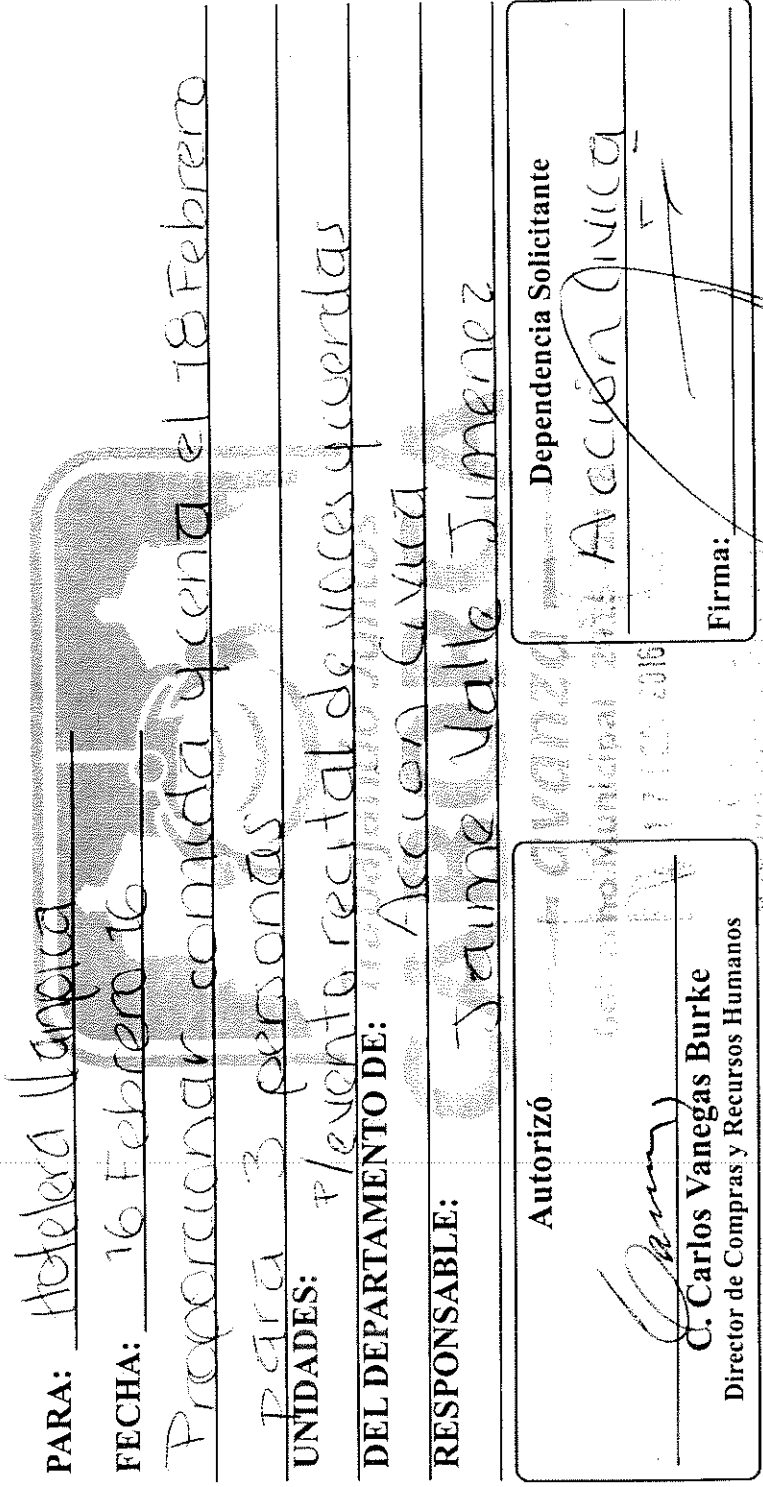 PARA: Hotelera
FECHA: 16 Febrero 16
Proporcionar comida y cena el 18 Febrero
para 3 personas
UNIDADES: P/evento recital de voces y
DEL DEPARTAMENTO DE: Acción Civica
RESPONSABLE: Jaime Valle Jimenez
Autorizó
C. Carlos Vanegas Burke
Director de Compras y Recursos Humanos
Dependencia Solicitante
Acción Civica
Firma:
avanza
Trabajando Juntos
Municipal
2016